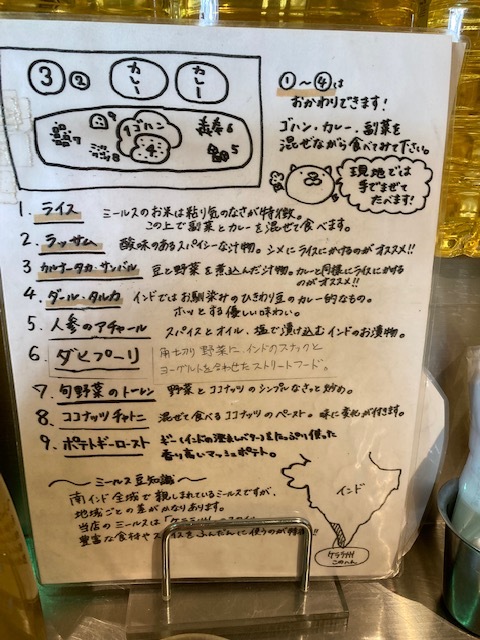 ③ ② カレー カレー
①～④は
おかわりできます!
ゴハン・カレー・副菜を
混ぜながら食べてみて下さい。
現地では
手でまぜて
たべます!
9 1 ゴハン 6
7 4
8 5
1. ライス ミールスのお米は粘り気のなさが特徴。
この上で副菜とカレーを混ぜて食べます。
2. ラッサム 酸味のあるスパイシーな汁物。シメにライスにかけるのがオススメ!!
3 カルナータカ・サンバル 豆と野菜を煮込んだ汁物。カレーと同様にライスにかける
のがオススメ!!
4. ダール・タルカ インドではお馴染みのひきわり豆のカレー的なもの。
ホッとする優しい味わい。
5. 人参のアチャール スパイスとオイル、塩で漬け込むインドのお漬物。
6 ダヒプーリ 角切り野菜に、インドのスナックと
ヨーグルトを合わせたストリートフード。
7 旬野菜のトーレン 野菜とココナッツのシンプルなさっと炒め。
8. ココナッツチャトニ 混ぜて食べるココナッツのペースト。味に変化が付きます。
9. ポテトギーロースト ギー(インドの澄ましバター)をたっぷり使った
香り高いマッシュポテト。
～ミールス豆知識～
南インド全域で親しまれているミールスですが、
地域ごとの差がかなりあります。
当店のミールスは「ケララ州
豊富な食材やスパイスをふんだんに使うのが特徴!!
インド
ケララ州
このへん